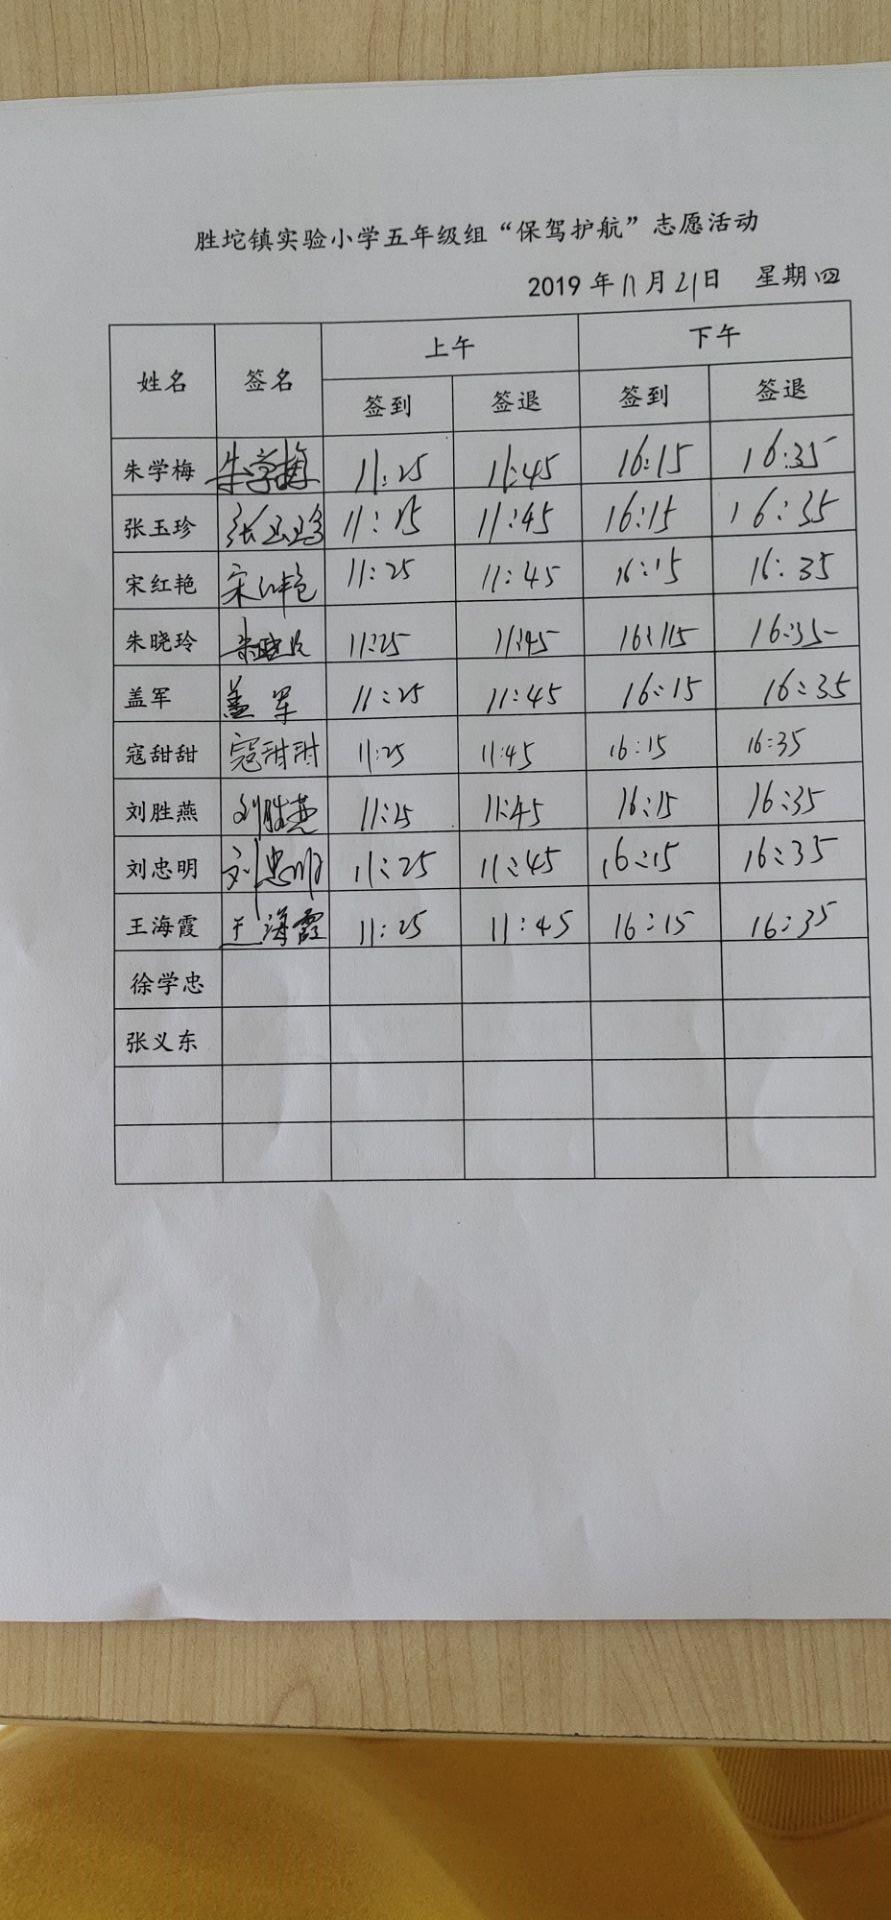 胜坨镇实验小学五年级组“保驾护航”志愿活动
2019 年 11 月 21 日 星期四
姓名 签名 上午 下午
签到 签退 签到 签退
朱学梅 朱学梅 11:25 11:45 16:15 16:35
张玉珍 张玉珍 11:25 11:45 16:15 16:35
宋红艳 宋红艳 11:25 11:45 16:15 16:35
朱晓玲 朱晓玲 11:25 11:45 16:15 16:35
盖军 盖军 11:25 11:45 16:15 16:35
寇甜甜 寇甜甜 11:25 11:45 16:15 16:35
刘胜燕 刘胜燕 11:25 11:45 16:15 16:35
刘忠明 刘忠明 11:25 11:45 16:15 16:35
王海霞 王海霞 11:25 11:45 16:15 16:35
徐学忠
张义东